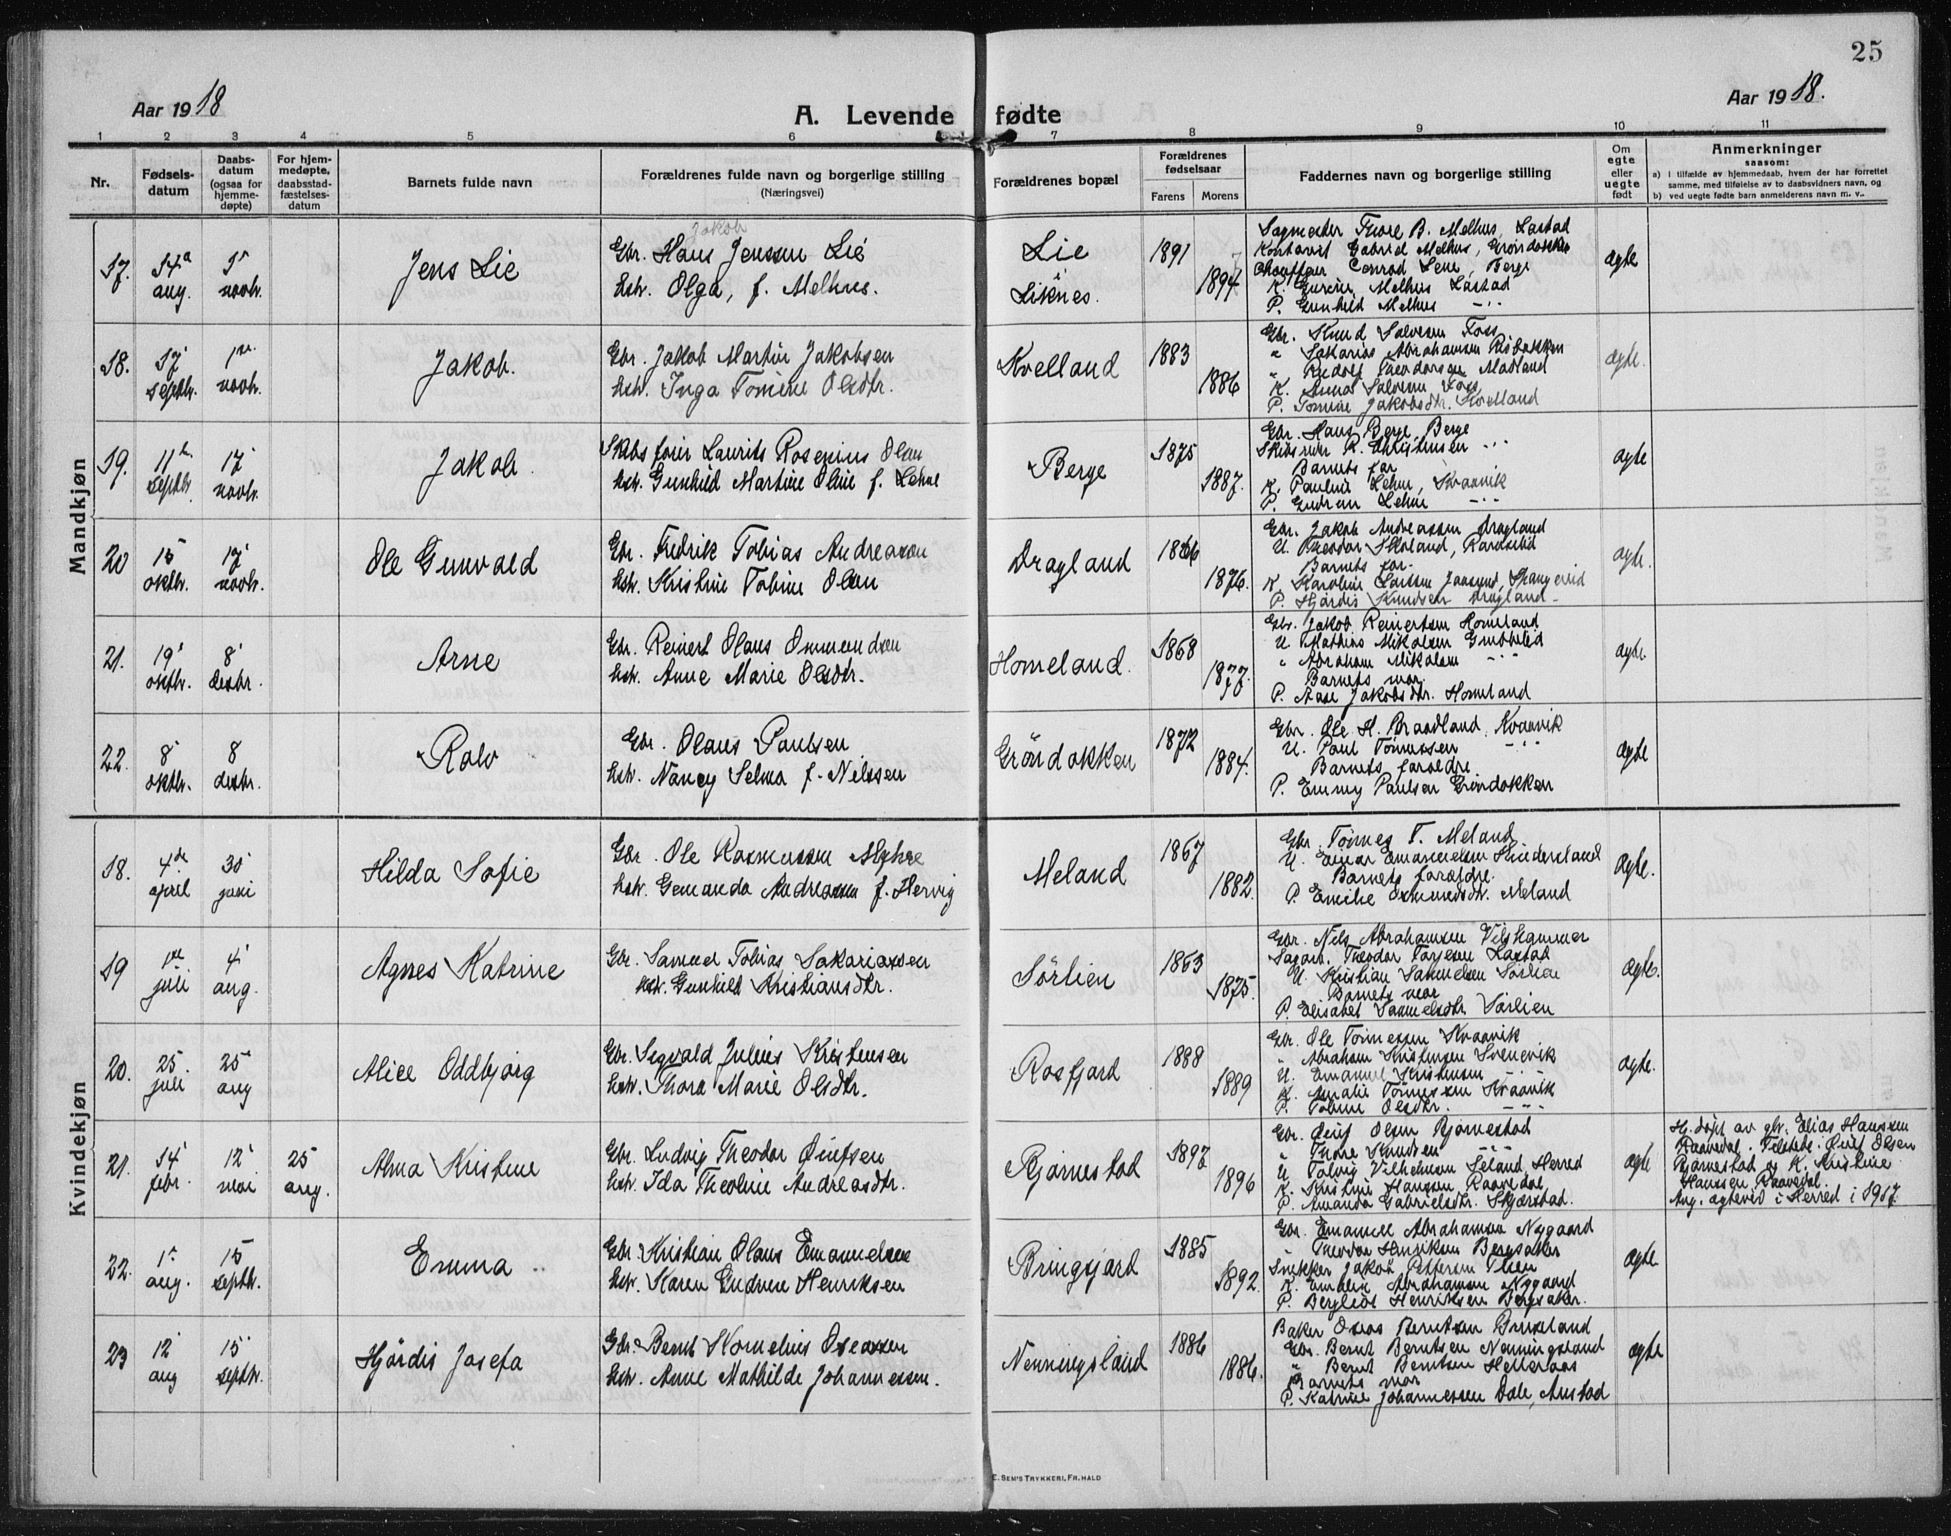 25
Aar 1918
A. Levende fødte
Aar 1918.
1 2 3 4 5 6 7 8 9 10 11
Nr.
Fødsels-
datum
Daabs-
datum
(ogsaa for
hjemme-
døpte)
For hjem-
medøpte,
daabsstad-
fæstelses-
datum
Barnets fulde navn
Forældrenes fulde navn og borgerlige stilling
(Næringsvei)
Forældrenes bopæl
Forældrenes
fødselsaar
Farens Morens
Faddernes navn og borgerlige stilling
Om
egte
eller
uegte
født
Anmerkninger
saasom:
a) I tilfælde av hjemmedaab, hvem der har forrettet
samme, med tilføielse av to daabsvidners navn, og
b) ved uegte fødte barn anmelderens navn m. v..
Mandkjøn
17. 14de aug. 3' novb. Jens Lie
Jakob
Gbr. Hans Jenssen Lie
hstr. Olga, f. Melhus.
Lie
Liknes.
1891 1894
Thore B. Melhus, Lastad
Gabriel Melhus, Gröndokken
Chauffeur Conrad Lene, Berge
K. Melhus Lastad
P. Gunhild Melhus -"-
ægte
18. 17' septbr. 1ste novb. Jakob.
Gbr. Jakob Martin Jakobsen
hstr. Inga Tomine Olsdtr.
Kvelland
1883 1886
Gbr. Knud Salvesen Foss
" Sakarias Abrahamsen Risbakken
" Theodorsen Madland
K. Anna Salvesen Foss
P. Tomine Jakobsdtr. Kvelland
ægte.
19. 11te septbr. 17' novb. Jakob.
Skibsfører Laurits Rosenius Olsen
hstr. Gunhild Martine Oline f. Lehne
Berge
1875 1887.
Gbr. Hans Berge, Berge
R. Christensen -"-
Barnets far
K. Pauline Lehne, Kvaavik
P. Gudrun Lehne -"-
ægte
20 15' oktbr. 17' novb. Ole Gunvald
Gbr. Fredrik Tobias Andreassen
hstr. Kristine Tobine Olsen
Dragland
1866 1876.
Gbr. Jakob Andreassen Dragland
U. Theodor Skoland,
Barnets far.
K. Karoline Larssen
P. Hjördis Knudsen Dragland
ægte.
21. 19' oktbr. 8' desbr. Arne
Gbr. Reinert Olaus Ommundsen
hstr. Anne Marie Olsdtr.
Homeland.
1868 1877.
Gbr. Jakob Reinertsen Homeland
U Mathias Mikalsen
" Abraham Mikalsen -"-
Barnets mor.
P. Aase Jakobsdtr. Homeland
ægte.
22. 8' oktbr. 8 desbr. Ralv
Gbr. Olaus Paulsen
hstr. Nancy Selma f. Nilssen
Gröndokken
1872 1884.
Gbr. Ole H. Braadland, Kvaavik
U. Paul Tönnessen -"-
Barnets forældre
P. Emmy Paulsen Gröndokken
ægte
Kvindekjøn
18. 4de april 30' juni Hilda Sofie
Gbr. Ole Rasmussen Myhre
hstr. Gemunda Andreassen f. Hervig
Meland
1867 1882.
Gbr. Tönnes T. Meland
U. Einar Emanuelsen
Barnets forældre.
P. Emilie Osmundsdtr. Meland
ægte.
19 1ste juli 4' aug. Agnes Katrine
Gbr. Samuel Tobias Sakariassen
hstr. Gunhild Kristiansdtr.
Sörlien
1863 1875.
Gbr. Nils Abrahamsen
Sagarb. Theodor Torjesen Lastad
U. Kristian Samuelsen Sörlien
Barnets mor
P. Elisabet Samuelsdtr Sörlien
ægte.
20. 25. juli 25' aug Alice Oddbjørg
Gbr. Sigvald Julius Kristensen
hstr. Thora Marie Olsdtr.
Rosfjord
1888 1889
Gbr. Ole Tönnessen Kvaavik
" Abraham Kristensen Svenevik
U. Emanuel Kristensen -"-
K. Amalie Tönnessen Kvaavik
P. Tobine Olsdtr. -"-
ægte.
21. 14' febr. 12' mai 25 aug. Alma Kristine
Gbr. Ludvig Theodor Leufsen
hstr. Ida Theoline Andreasdtr.
Bjørnestad
1897 1896
Gbr. Olsen Bjørnestad
" Thore Knudsen -"-
U Tolvig Vilhelmsen Leland, Herred
K. Kristine Hanssen Raavedal.
P. Amanda Gabrielsdtr. Skjærstad.
ægte
H. døpt av gbr. Elias Hanssen
Raavedal. Tilstede: Olsen
Bjørnestad og K. Kristine
Hanssen Raavedal.
Ang. ægtevid i Herred i 1917
22. 1ste aug. 15 septbr. Emma
Gbr. Kristian Olaus Emanuelsen
hstr. Karen Gudrine Henriksen
Bringsjord
1885 1892.
Gbr. Emanuel Abrahamsen Nygaard
" Theodor Henriksen Bergsaker
Snekker Jakob Pettersen
K. Emelie Abrahamsen Nygaard
P. Bergliot Henriksen Bergsaker.
ægte.
23 12' aug 15' septbr. Hjördis Josefa
Gbr. Bernt Kornelius Oseassen
hstr. Anne Mathilde Johannessen.
Nenningsland
1886 1886.
Baker Oseas Berntsen
Gbr. Bernt Berntsen Nenningsland
" Bernt Berntsen Helleraas
Barnets mor
P. Katrine Johannessen Dale, Austad
ægte
E. SEM'S TRYKKERI, FR.HALD